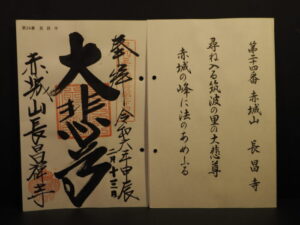 第二十四番 赤城山 長昌寺
尋ね入る筑波の里の大悲尊
赤城の峰に法のあめふる
奉拝
令和六年甲辰
月十三日
大悲尊
赤城山長昌寺